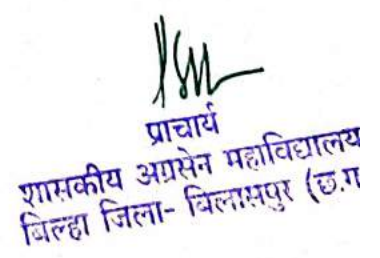 प्राचार्य
शासकीय अग्रसेन महाविद्यालय
बिल्हा जिला- बिलासपुर (छ.ग